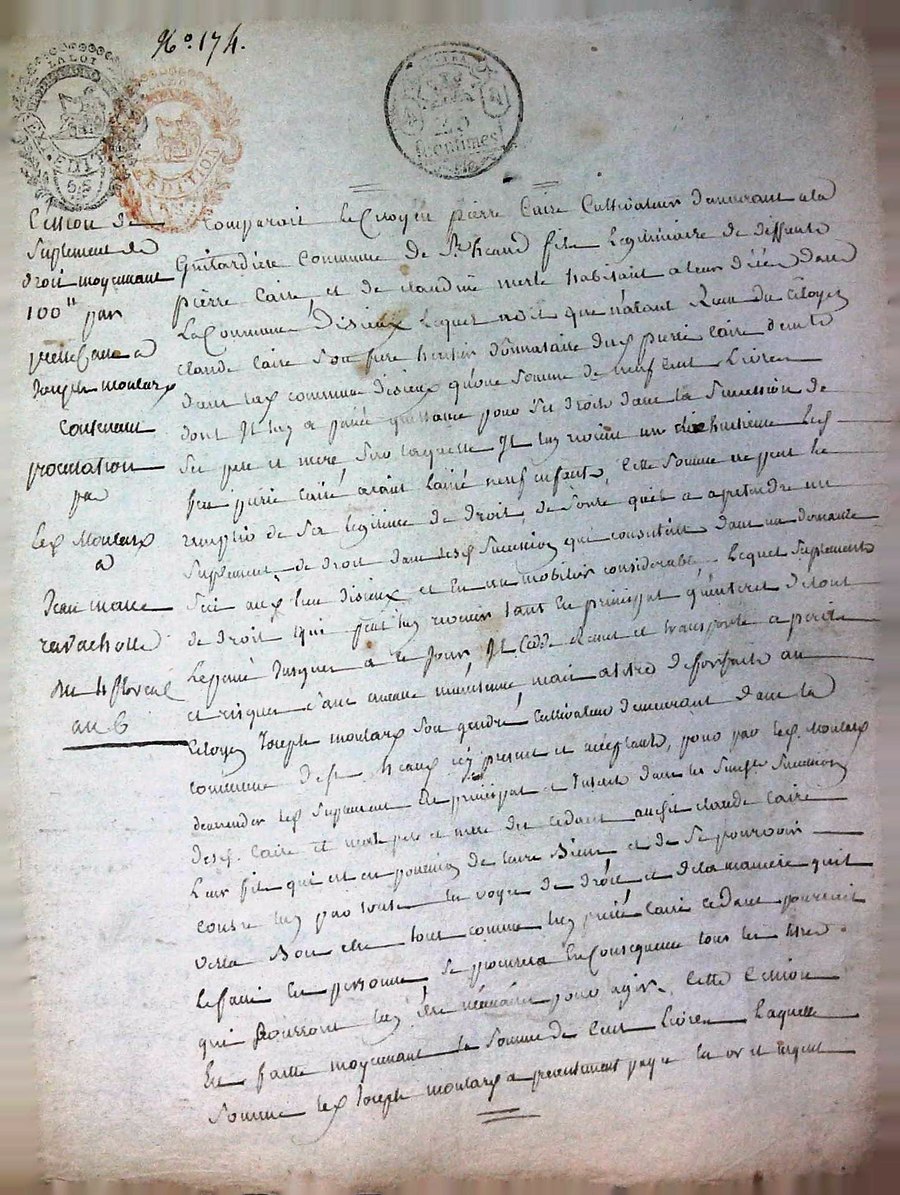 N.° 174.
25
Centimes
EXPEDITION
Cession de
suplement de
droit moyennant
100 " par
pierre Caire a
Joseph moulard
Contenant
procuration
par
led. Moulard
a
Jean marie
ravacholle
du 4 floreal
an 6
Comparoit le Citoyen pierre Caire Cultivateur demeurant ala
Guitardière Commune de St. heand fils Legitimaire de deffunts
pierre Caire, et de claudine merle habitant a leur décés dans
La Commune disieux Lequel a dit que n'ayant Reçu du Citoyen
claude Caire Son frere heritier donnataire dud. pierre Caire demt.
dans lad. commune disieux qu'une Somme de neuf cent Livres
dont Il luy a passé quittance pour Ses droits dans la Succession de
Ses pere et mere, Sur laquelle Il luy revient un dixhuitieme led.
feu pierre Caire aiant laissé neuf enfants, Cette Somme ne peut le
remplir de Sa legitime de droit, de Sorte quil a apretendre un
Suplement de droit dans lesd. Succession qui consistent dans un domaine
Situé aud. lieu disieux et En un mobilier considerable. Lequel Suplement
de droit qui peut luy revenir tant En principal qu'interet de tout
Le passé Jusques a ce Jour, Il Cede remet et transporte a perils
et risques Sans aucune maintenue mais atitre de forfaits au
Citoyen Joseph moulard Son gendre Cultivateur demeurant dans la
commune de St. heand icy present et acceptant, pour par led. Moulard
demander led. Suplement En principal et Interet dans les Susd. Succession
desd. Caire et merle pere et mere du cedant audit claude Caire
Leur fils qui est en possession de leurs Biens et de Se pourvoir
contre luy par toute les voyes de droit et dela maniere quil
verra Bon etre tout comme led. pierre Caire cedant pourroit
le faire En personne Se procurera En Consequence tous les titres
qui pourront luy être necessaire pour agir. Cette Cession
Est faitte moyennant la Somme de Cent Livres Laquelle
Somme led. Joseph moulard a presentement payé En or et argent